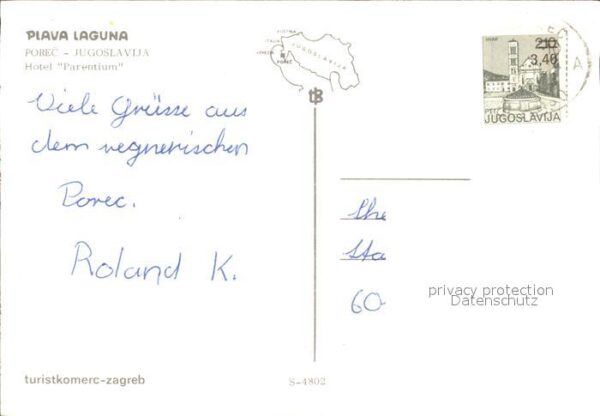 PLAVA LAGUNA
POREČ – JUGOSLAVIJA
Hotel "Parentium"
JUGOSLAVIJA
POREČ
210
3,40
JUGOSLAVIJA
A
Viele Grüsse aus
dem regnerischen
Porec.
Roland K.
60
privacy protection
Datenschutz
turistkomerc-zagreb
S-4802